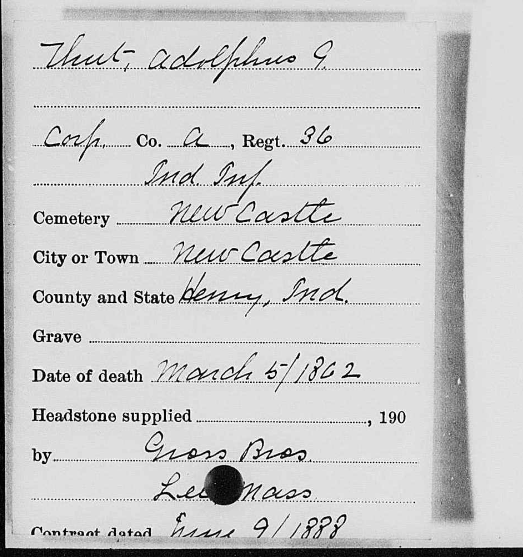 Thut, Adolphus G.
Corp. Co. A, Regt. 36
Ind. Inf.
Cemetery New Castle
City or Town New Castle
County and State Henry, Ind.
Grave
Date of death March 5/1862
Headstone supplied , 190
by Gross Bros.
Lee, Mass
Contract dated June 9/1888